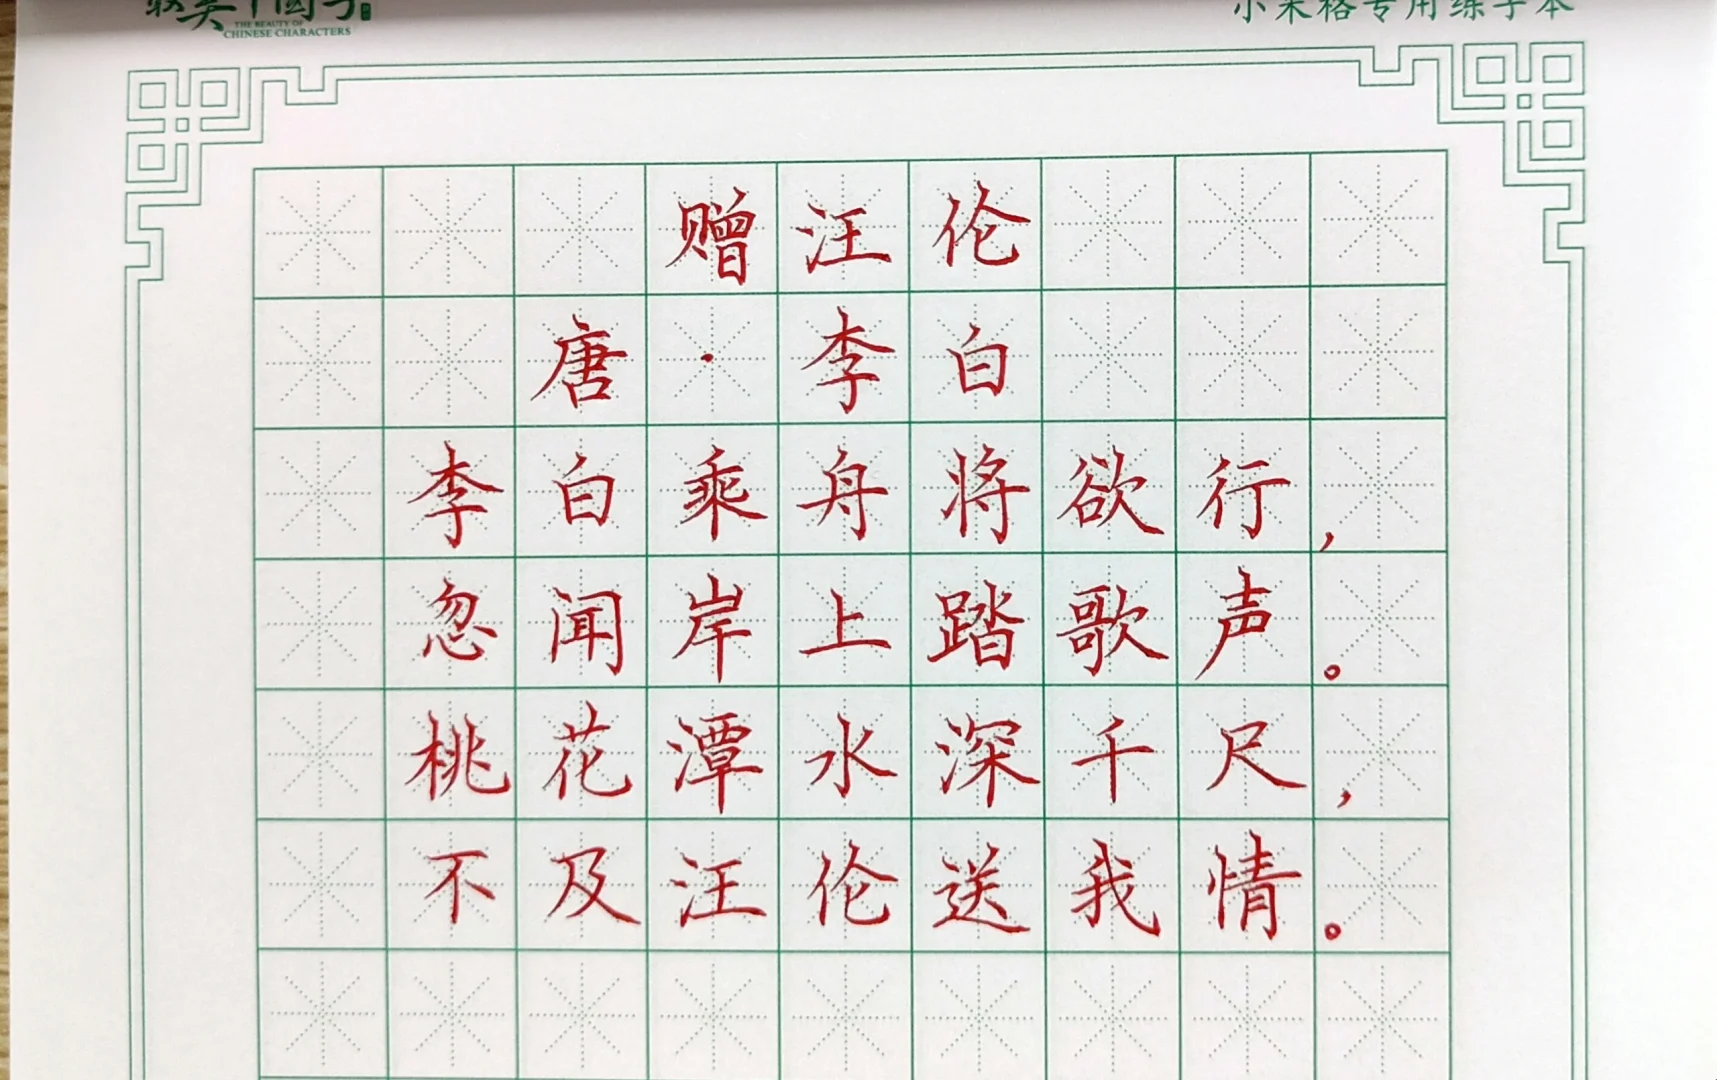 最美中国字
THE BEAUTY OF
CHINESE CHARACTERS
小米格专用练字本
赠汪伦
唐·李白
李白乘舟将欲行，
忽闻岸上踏歌声。
桃花潭水深千尺，
不及汪伦送我情。